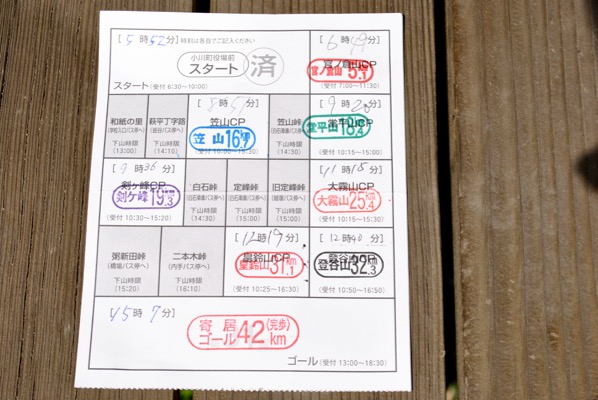 [5時52分] 時刻は各自でご記入ください
小川町役場前
スタート
済
スタート (受付 6:30~10:00)
[6時49分]
官ノ倉山CP
官ノ倉山 5.1
(受付 7:00~11:30)
和紙の里
下山時限
(13:00)
萩平丁字路
下山時限
(14:10)
笠山CP
笠山 16.7
笠山峠
下山時限
(14:30)
[9時20分]
堂平山CP
堂平山 18.4
(受付 10:15~15:00)
[9時36分]
剣ヶ峰CP
剣ケ峰 19.3
(受付 10:30~15:20)
白石峠
下山時限
(14:30)
定峰峠
下山時限
(15:00)
旧定峰峠
下山時限
(15:00)
[11時15分]
大霧山CP
大霧山 25.4
(受付 10:15~15:30)
粥新田峠
(橋場バス停へ)
下山時限
(15:20)
二本木峠
(内手バス停へ)
下山時限
(16:10)
[12時19分]
皇鈴山CP
皇鈴山 31.1
(受付 10:25~16:30)
[12時40分]
登谷山CP
登谷山 32.3
(受付 10:50~16:50)
[15時7分]
寄居 (完歩)
ゴール 42km
ゴール (受付 13:00~18:30)